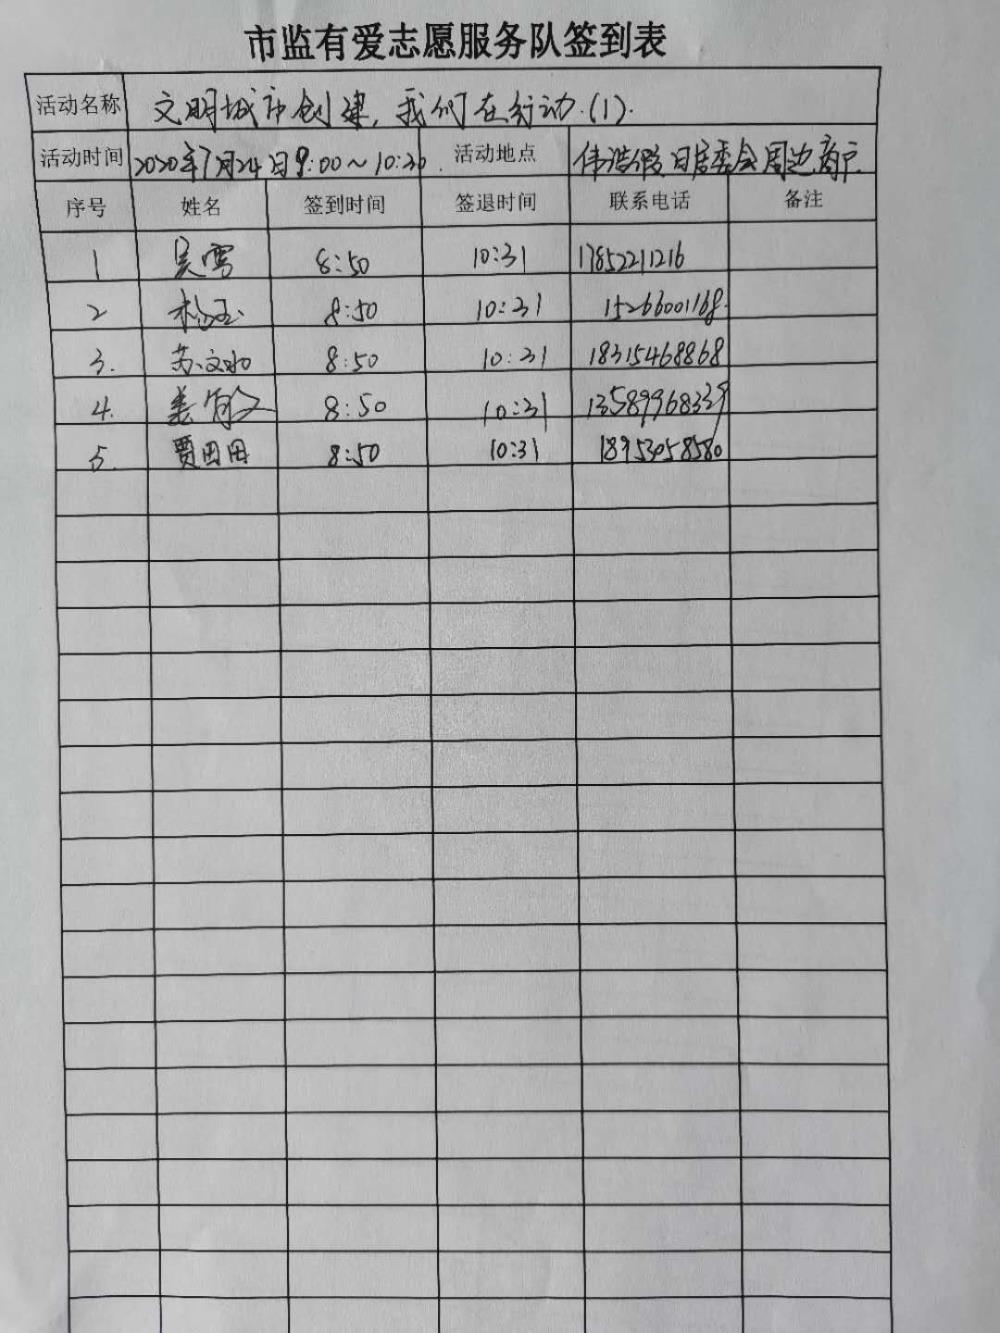 市监有爱志愿服务队签到表
活动名称 文明城市创建,我们在行动.(1).
活动时间 2020年7月24日9:00~10:30. 活动地点 伟浩假日居委会周边商户
序号 姓名 签到时间 签退时间 联系电话 备注
1 吴雪 8:50 10:31 17852211216
2 杨玉 8:50 10:31 15266001168.
3. 苏文 8:50 10:31 18315468868
4. 姜 8:50 10:31 13589968339
5. 贾田田 8:50 10:31 18953058580